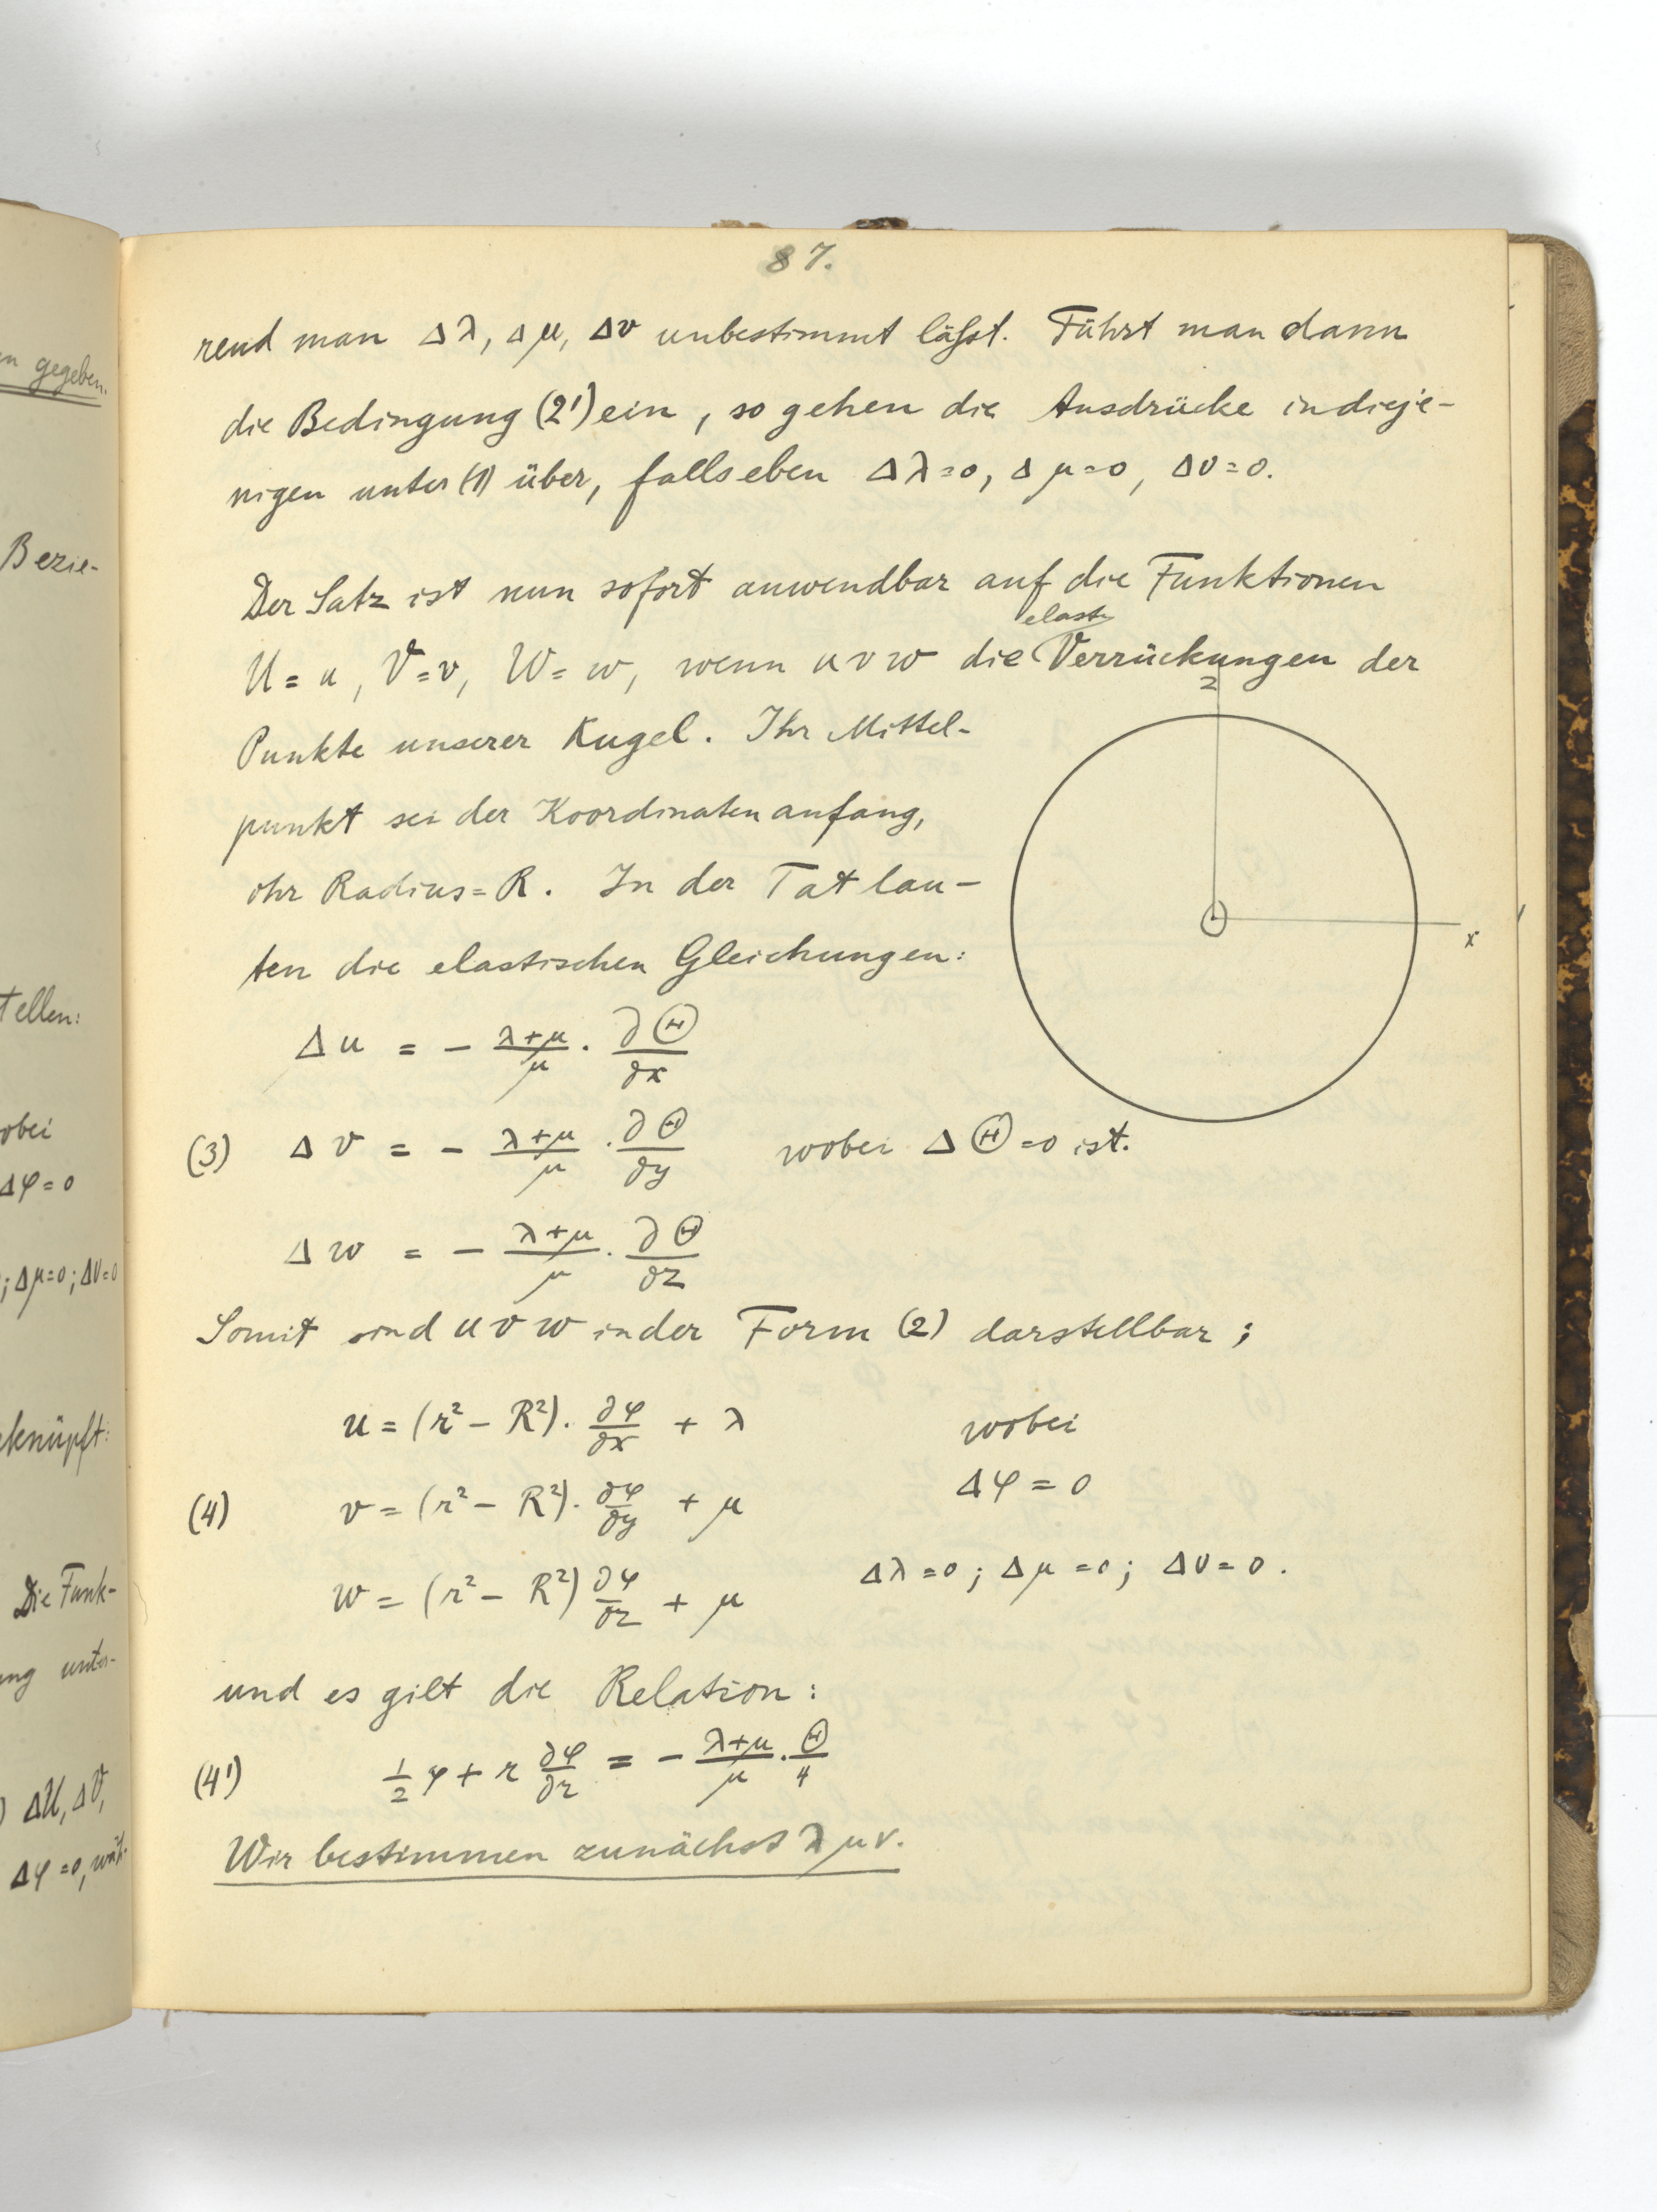 n gegeben.
Bezie-
tellen:
obei
Δφ=0
; Δμ=0; Δν=0
knüpft:
Die Funk-
ng unter-
) ΔU, ΔV,
Δφ=0, wäh-
87.
rend man Δλ, Δμ, Δν unbestimmt läßt. Führt man dann
die Bedingung (2') ein, so gehen die Ausdrücke in dieje-
nigen unter (1) über, falls eben Δλ=0, Δμ=0, Δν=0.
Der Satz ist nun sofort anwendbar auf die Funktionen
elast.
U=u, V=v, W=w, wenn u v w die Verrückungen der
Punkte unserer Kugel. Ihr Mittel-
punkt sei der Koordinatenanfang,
ihr Radius=R. In der Tat lau-
ten die elastischen Gleichungen:
z
x
Δu = - (λ+μ)/μ · ∂Θ/∂x
(3) Δv = - (λ+μ)/μ · ∂Θ/∂y wobei ΔΘ=0 ist.
Δw = - (λ+μ)/μ · ∂Θ/∂z
Somit sind u v w in der Form (2) darstellbar;
u = (r² - R²) · ∂φ/∂x + λ wobei
Δφ = 0
(4) v = (r² - R²) · ∂φ/∂y + μ
w = (r² - R²) ∂φ/∂z + μ Δλ=0; Δμ=0; Δν=0.
und es gilt die Relation:
(4') 1/2 φ + r ∂φ/∂r = - (λ+μ)/μ · Θ/4
Wir bestimmen zunächst λ μ ν.